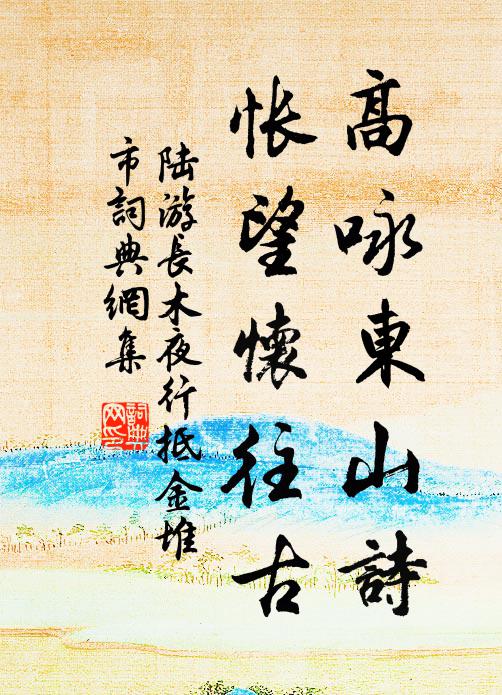 高咏東山詩
悵望懷往古
陆游長木夜行抵金堆
市詞典網集
詞典
网印